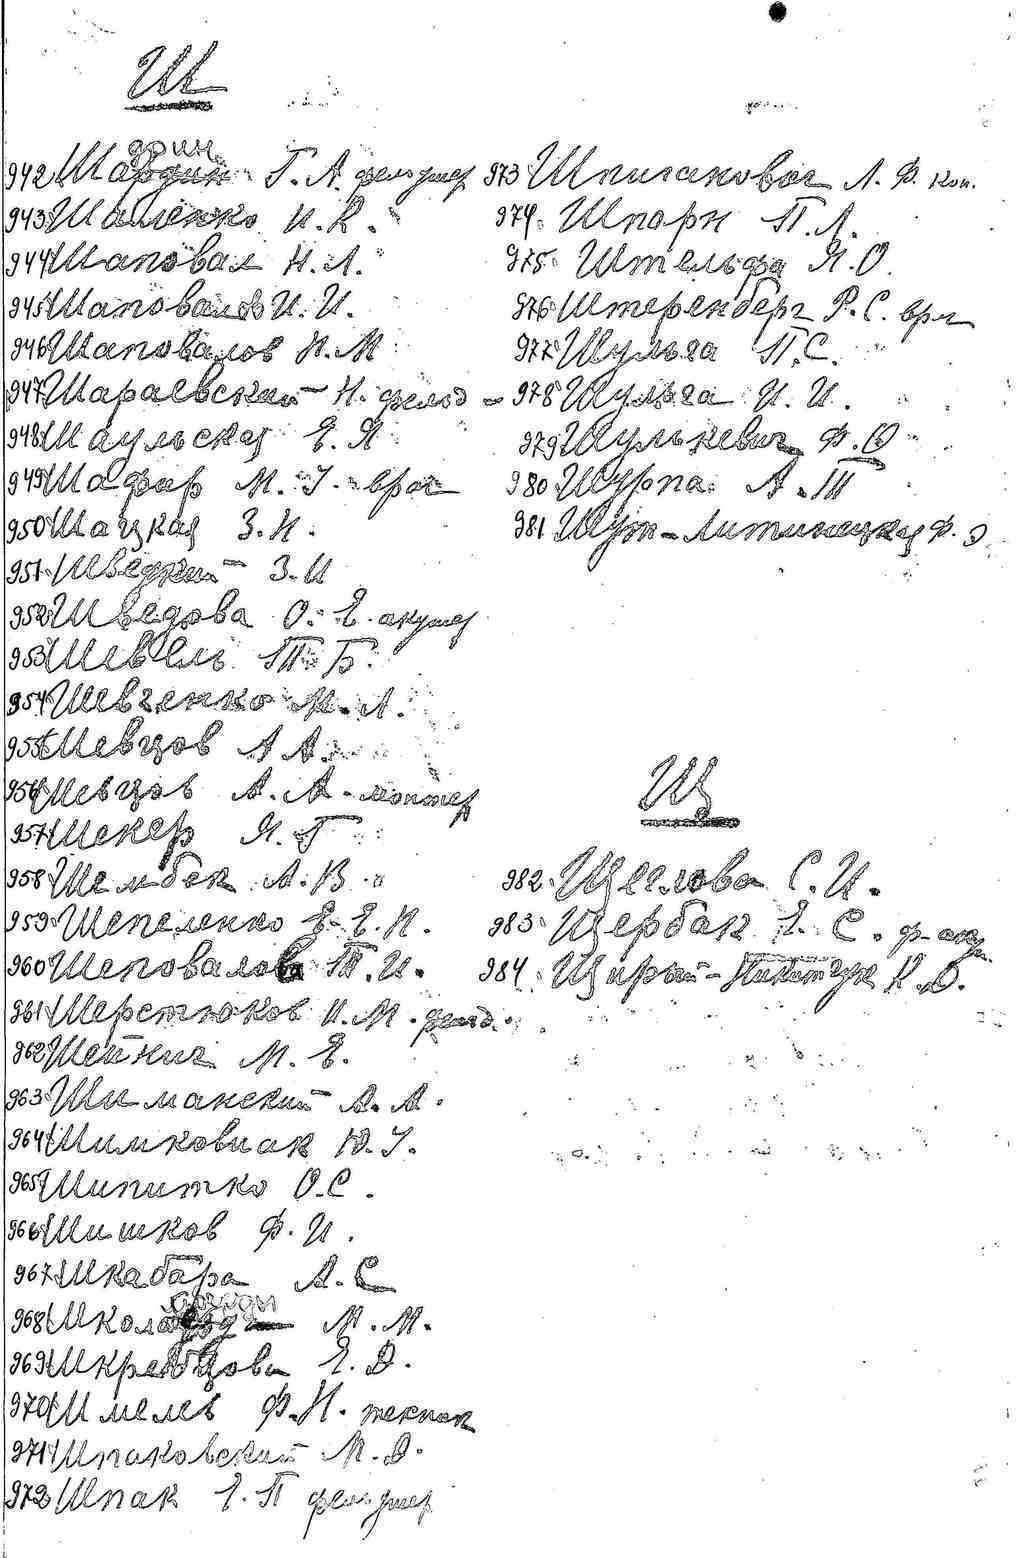 Ш
942 Шардин Г. А. фельдшер
943 Шаленко И. К.
944 Шаповал Н. Л.
945 Шаповалов И. И.
946 Шаповалов Н. М
947 Шараевский Н. фельд
948 Шаульская Е. Я
949 Шафир М. I. врач
950 Шацкая З. Н.
951. Шведкий З. И
952 Шведова О. Е. акушер
953 Шевель Т. Б.
954 Шевченко М. Л.
955 Шевцов А А.
956 Шевцов А. А. монтер
957 Шекер Я. Г
958 Шембек А. В.
959 Шепеленко Е. Н.
960 Шеповалова Т. И.
961 Шерстюков И. М. фельд.
962 Шейнич М. Е.
963 Шиманский А. А.
964 Шимковиак Ю. I.
965 Шипитко О. С.
966 Шишков Ф. И.
967 Шкабара А. С
968 М. М.
969 Шкребцова Е. Д.
970 Шмелев Ф. Н. техник
971 Шпаковский М. Д.
972 Шпак Е. П фельдшер
973 Шпигановая Л. Ф.
974. Шпорн П. Л.
975. Штельфа Я. О.
976 Штеренберг Р. С. врач
977 Шульга П. С.
978 Шульга И. И.
979 Шулькевич Ф. О
980 Шурпа А. Ш
981 Шуж-Литинецкая Ф. Э
Щ
982. Щеглова С. И.
983. Щербак Е. С. ф-аку
984. Щирый-Никитчук К. О.